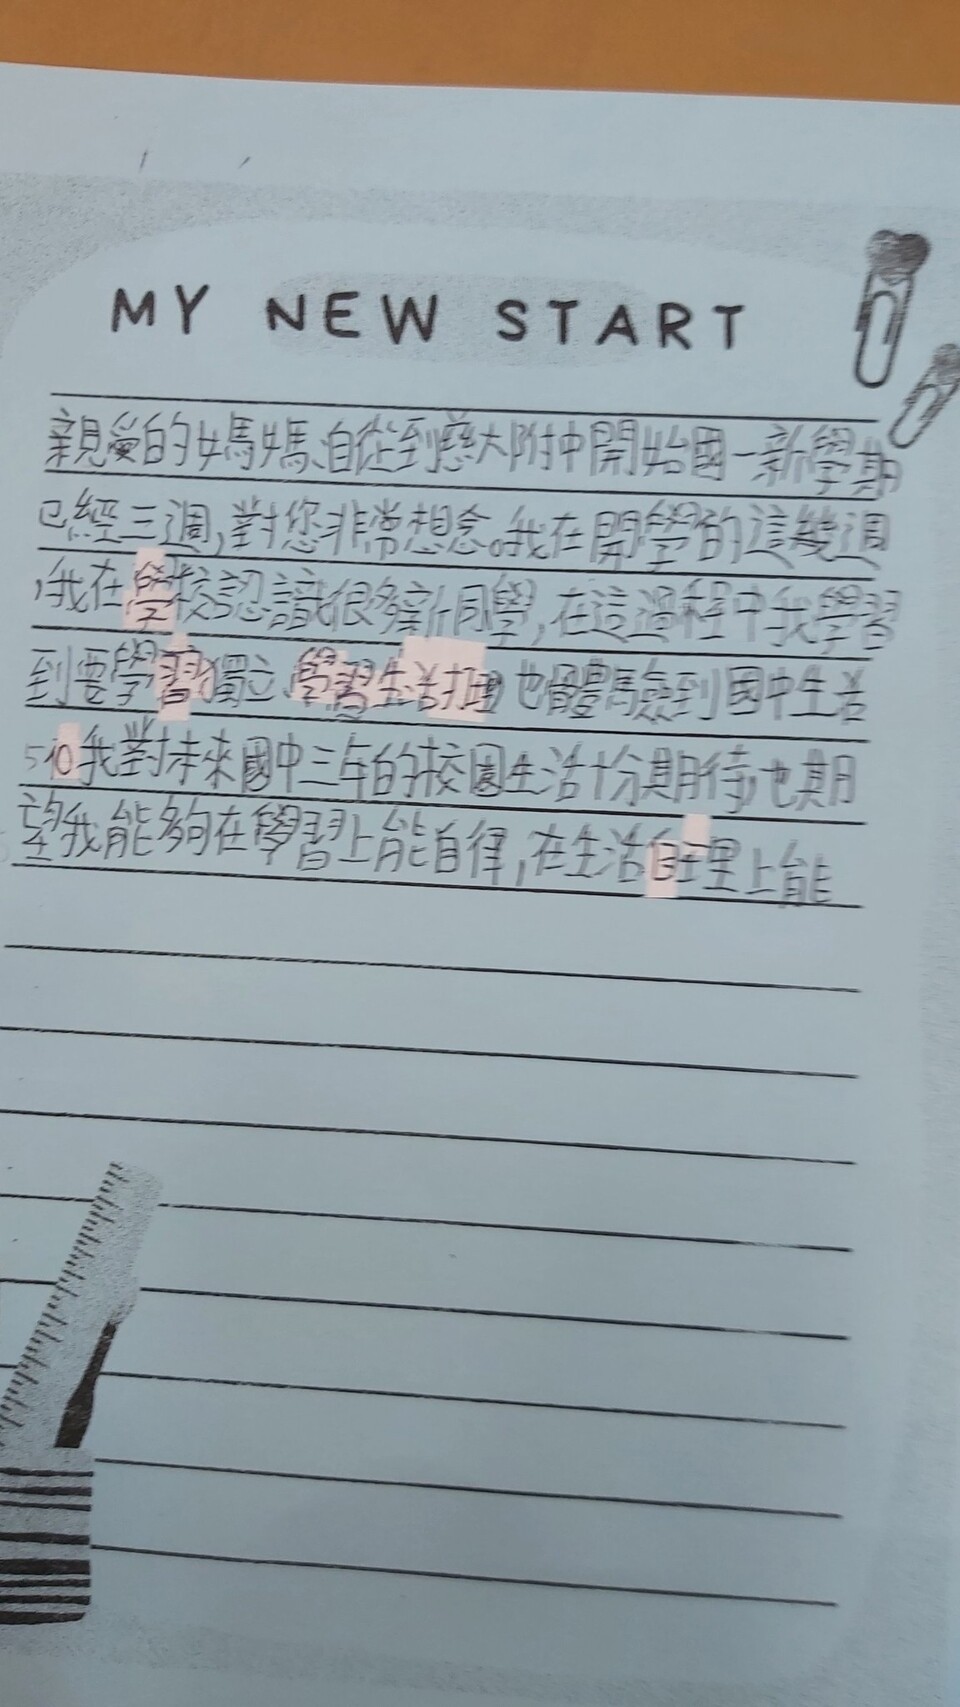 MY NEW START
親愛的媽媽、自從到慈大附中開始國一新學期
已經三週,對您非常想念。我在開學的這幾週
,我在學校認識很多新同學,在這過程中我學習
到要學習獨立、學習生活打理也體驗到國中生活
我對未來國中三年的校園生活十分期待,也期
望我能夠在學習上能自律,在生活自理上能